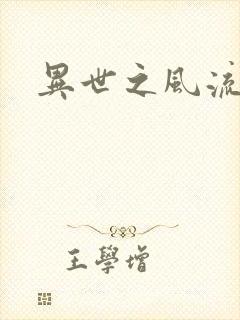 異世之風流
王學增